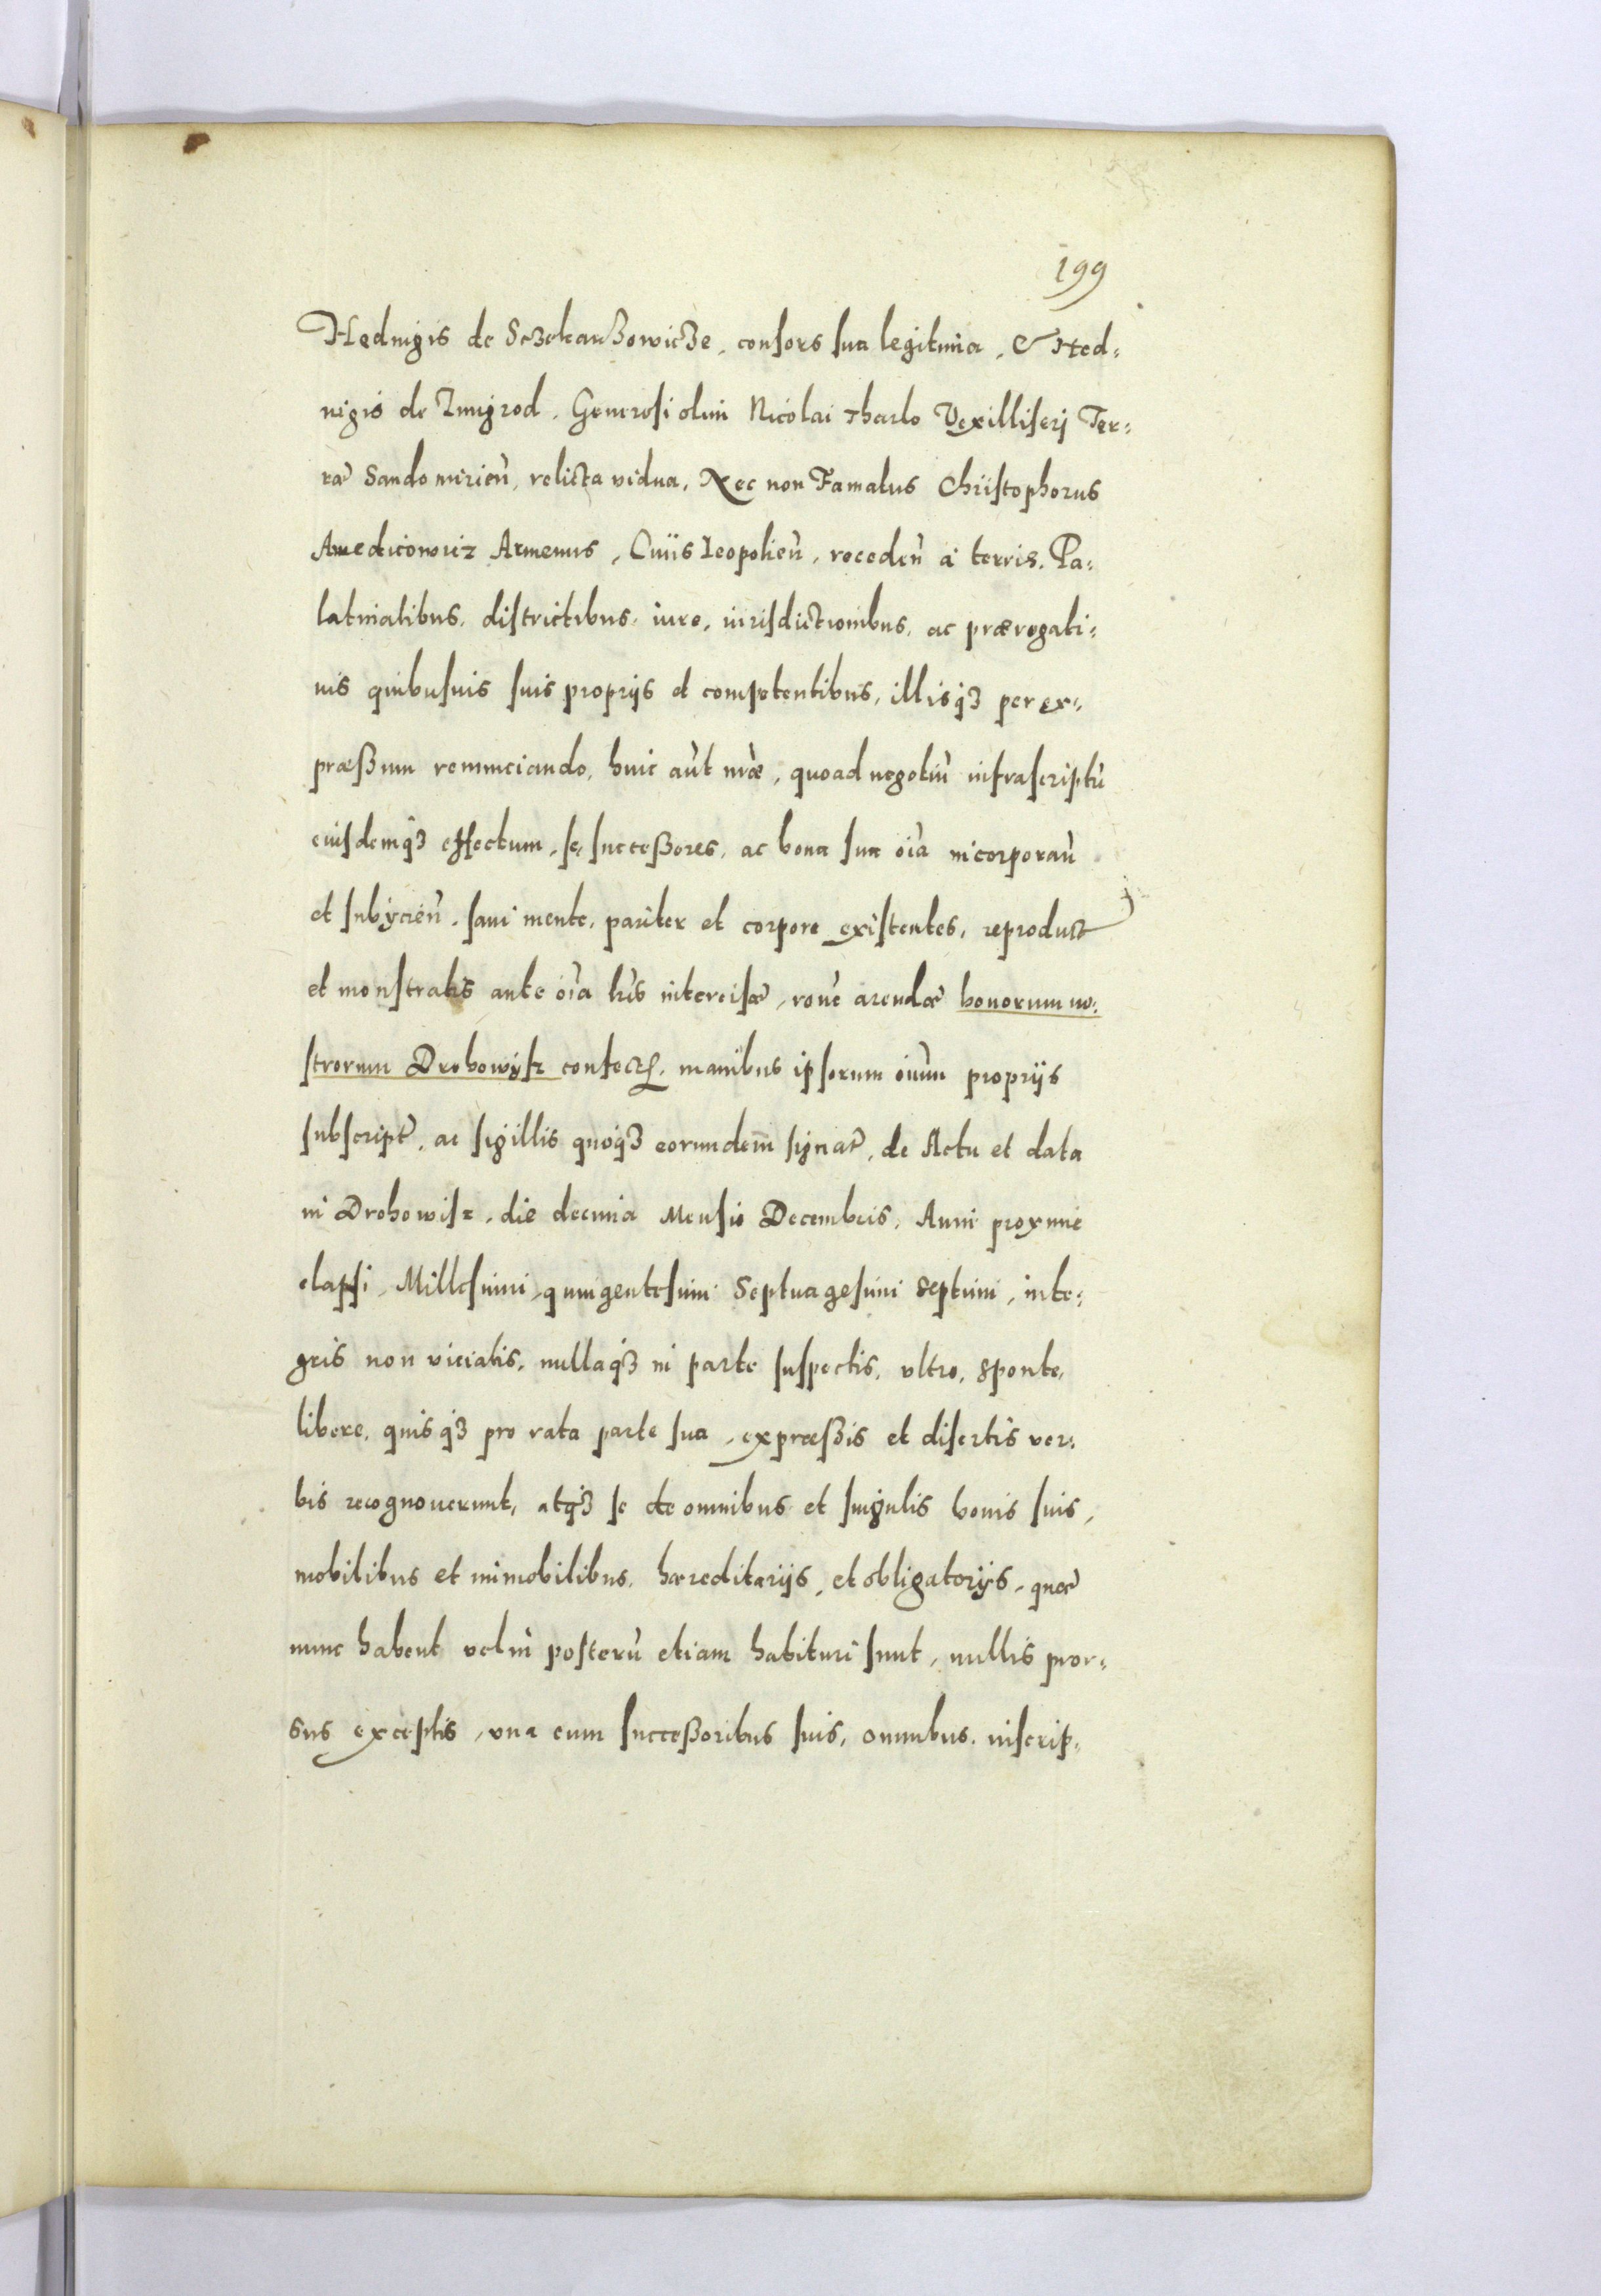 199
Heduigis de Sczekarzowicze, consors sua legitima, & Hed=
uigis de Zmigrod, Generosi olim Nicolai Tharlo Vexilliferi Ter=
ræ Sandomirien̄, relicta vidua, Nec non Famatus Christophorus
Armenus, Ciuis Leopolien̄, receden̄ à terris, Pa=
latinatibus, districtibus, iure, iurisdictionibus, ac prærogati=
uis quibusuis suis proprijs et competentibus, illisq3 per ex=
præßum renunciando, huic aūt nr̄æ, quoad negotiū infrascriptū
eiusdemq3 effectum, se, succeßores, ac bona sua oīa incorporan̄
et subijcien̄, sani mente, pariter et corpore existentes, reproduct
et monstratis ante oīa lr̄is intercisæ, rōne arendæ bonorum no=
strorum Drohowyſz confect, manibus ipsorum oīum proprijs
subscript, ac sigillis quoq3 eorundem signat, de Actu et data
in Drohowisz, die decima Mensis Decembris, Anni proxime
elapsi, Millesimi, quingentesimi Septuagesimi Septimi, inte=
gris non viciatis, nullaq3 in parte suspectis, vltro, sponte,
libere, quisq3 pro rata parte sua, expræßis et disertis ver=
bis recognouerunt, atq3 se de omnibus et singulis bonis suis,
mobilibus et immobilibus, hæreditarijs, et obligatorijs, quæ
nunc habent vel in posterū etiam habituri sunt, nullis pror=
sus exceptis, vna cum succeßoribus suis, omnibus, inscrip=